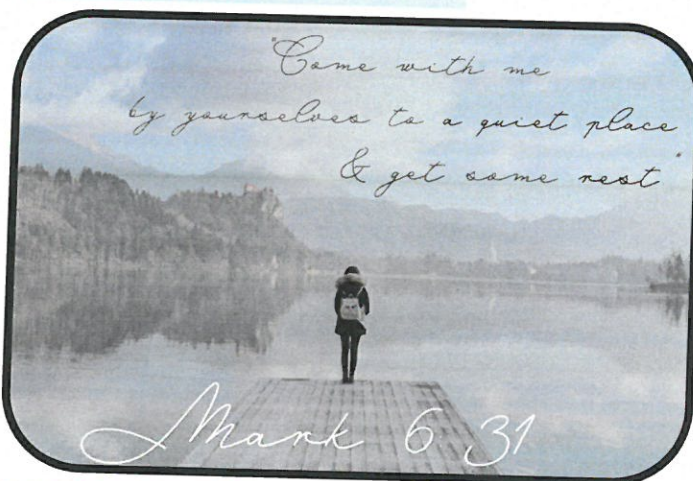 "Come with me
by yourselves to a quiet place
& get some rest"
Mark 6:31